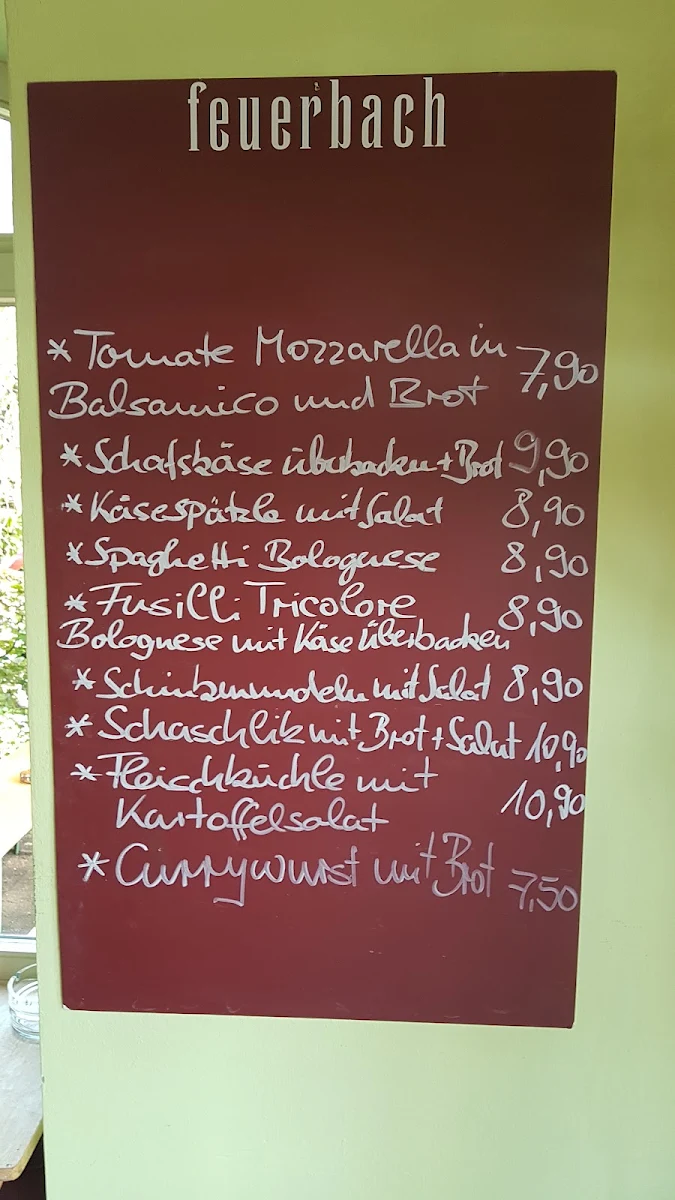 feuerbach
* Tomate Mozzarella in 7,90
Balsamico und Brot
* Schafskäse überbacken + Brot 9,90
* Käsespätzle mit Salat 8,90
* Spaghetti Bolognese 8,90
* Fusilli Tricolore 8,90
Bolognese mit Käse überbacken
* Schinkennudeln mit Salat 8,90
* Schaschlik mit Brot + Salat 10,90
* Fleischküchle mit
Kartoffelsalat 10,90
* Currywurst mit Brot 7,50